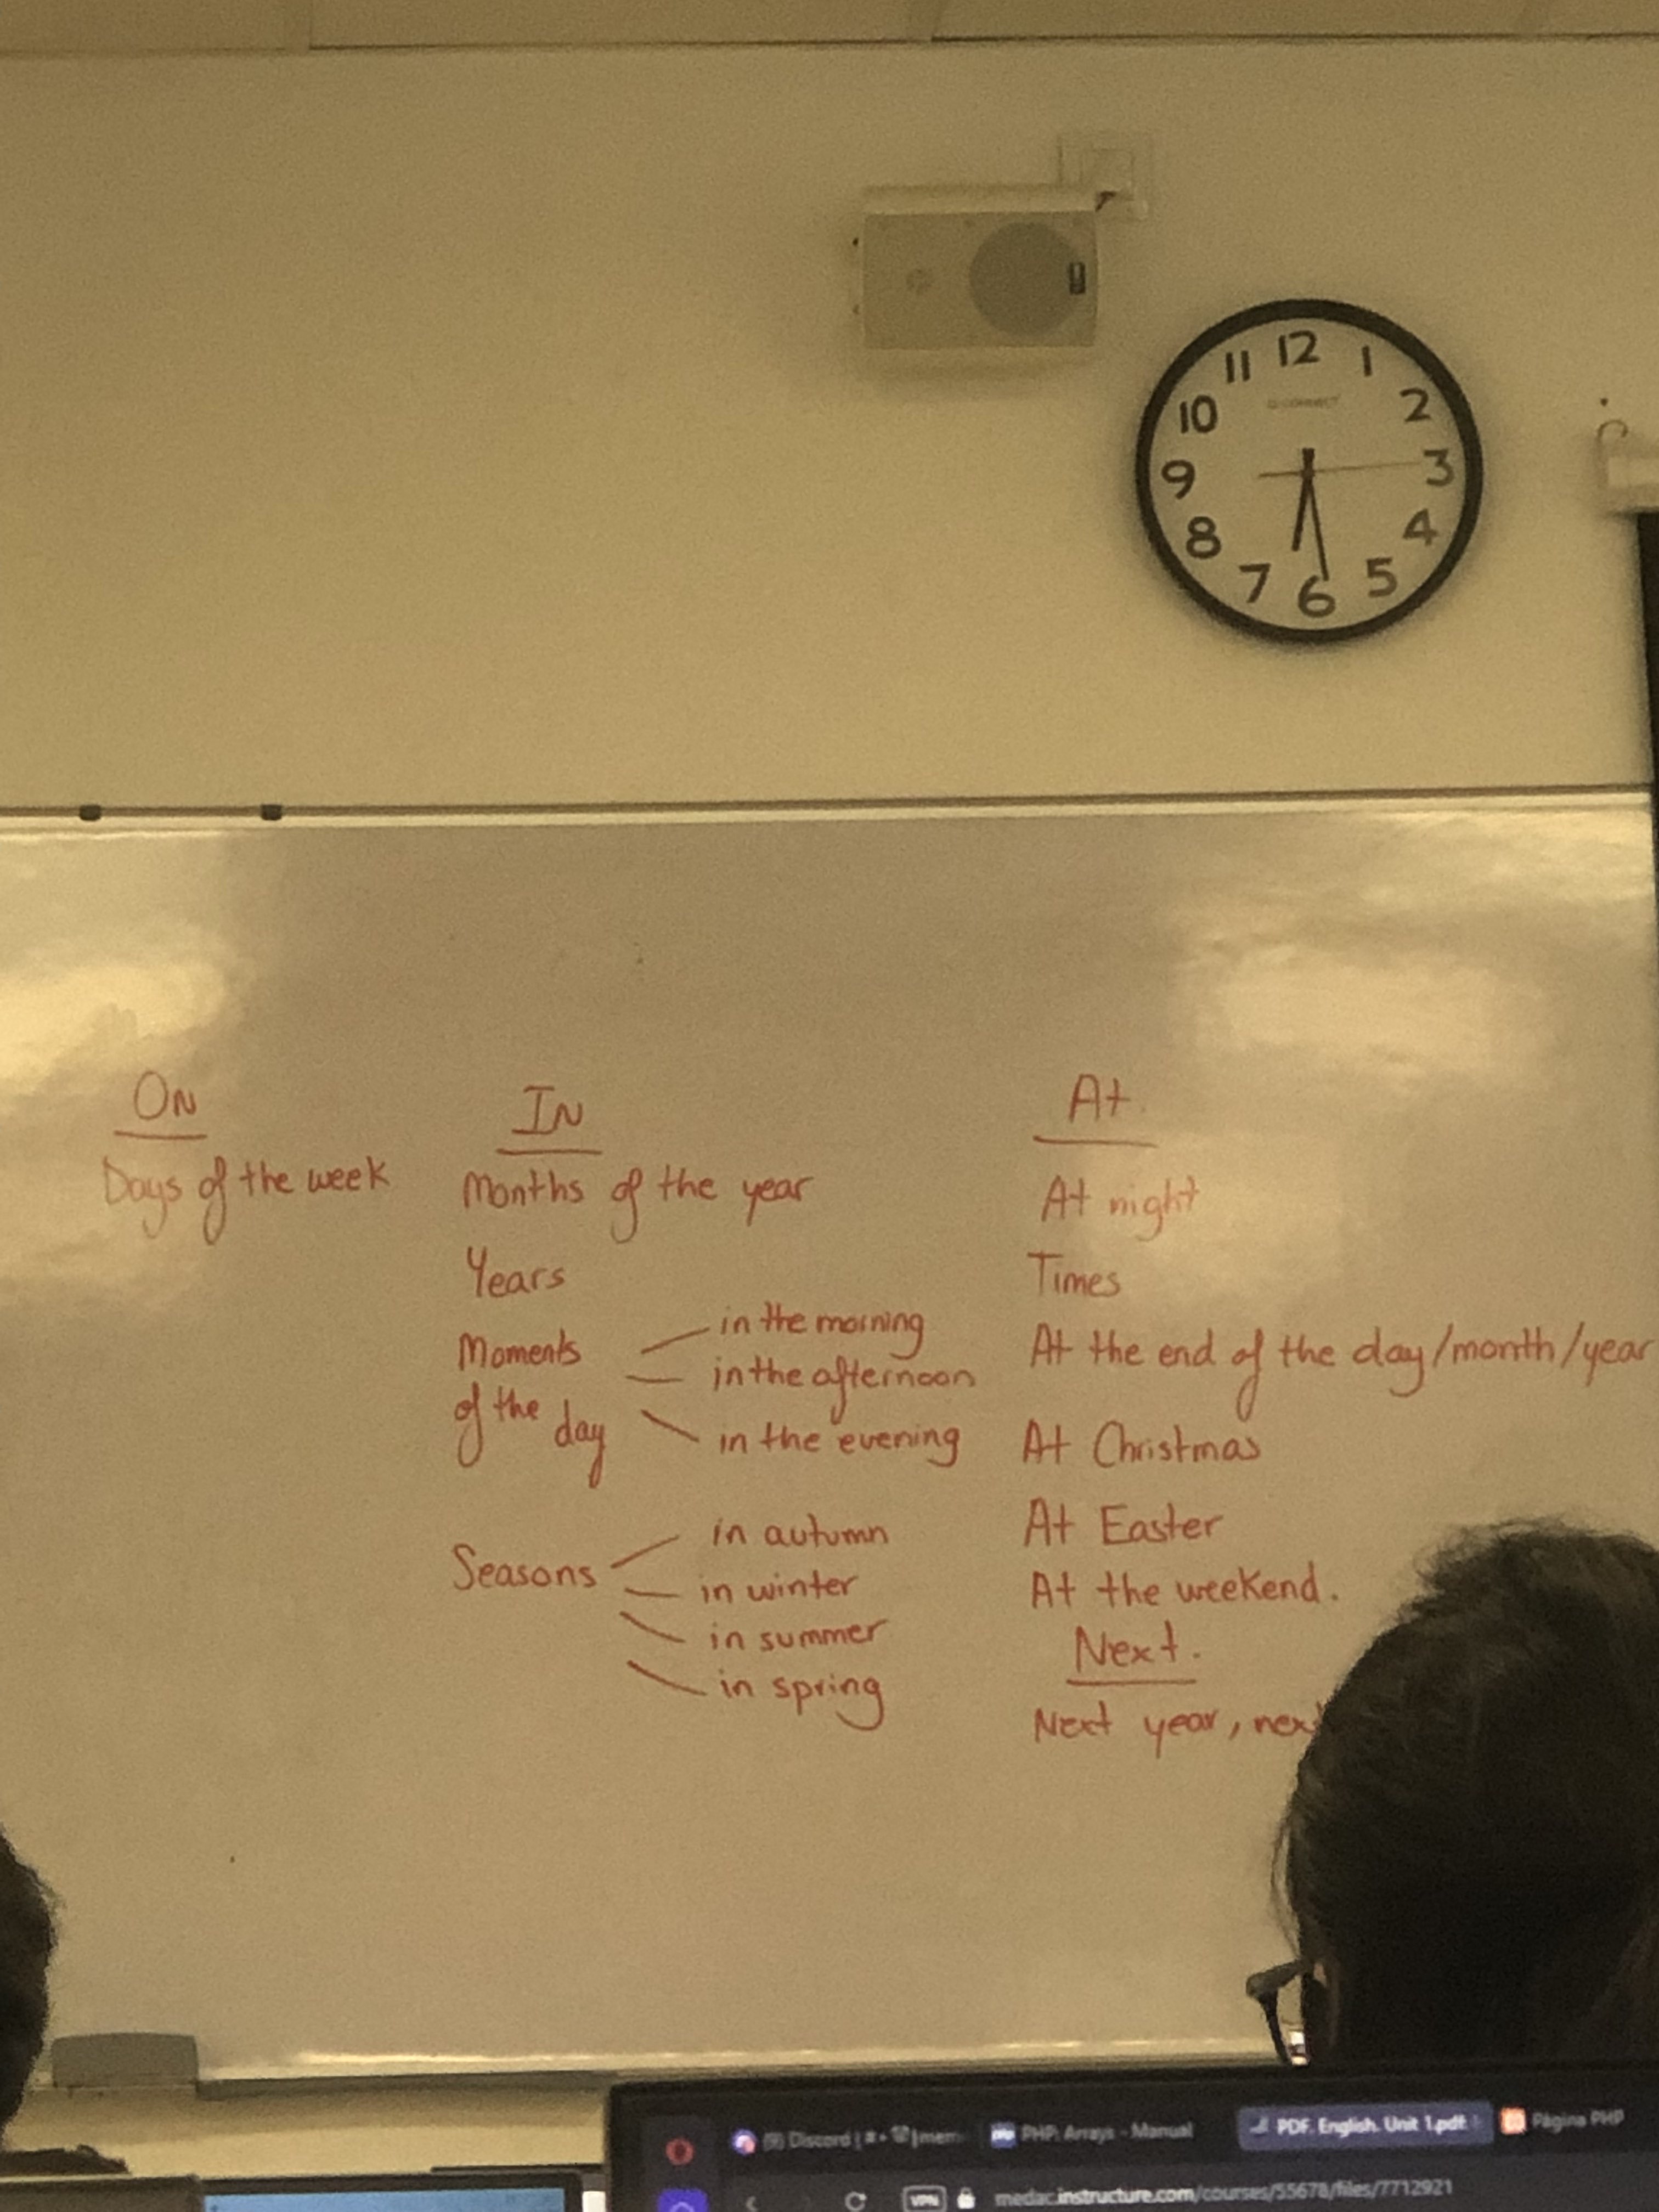 12
11
1
10
2
9
3
8
4
7
5
6
ON
Days of the week
IN
Months of the year
Years
Moments
of the day
in the morning
in the afternoon
in the evening
Seasons
in autumn
in winter
in summer
in spring
At.
At night
Times
At the end of the day/month/year
At Christmas
At Easter
At the weekend.
Next.
Next year, next
Discord
PHP: Arrays - Manual
PDF. English. Unit 1.pdf
Página PHP
VPN
medac.instructure.com/courses/55678/files/7712921